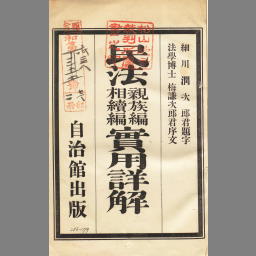 細川潤次郎君題字
法學博士 梅謙次郎君序文
民法親族編相續編實用詳解
自治館出版